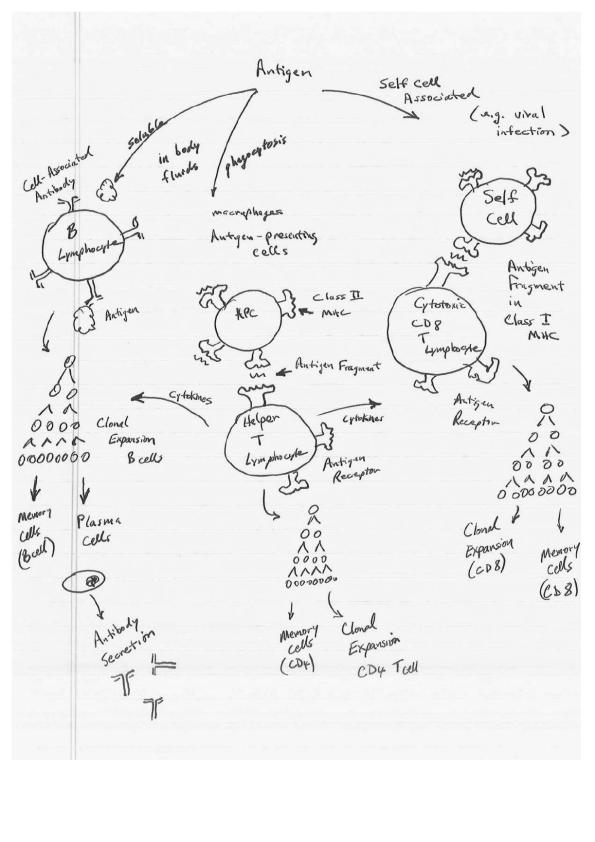 Antigen
Self Cell
Associated
(e.g. viral
infection)
soluble
in body
fluids
phagocytosis
Cell-Associated
Antibody
B
Lymphocyte
Antigen
macrophages
Antigen-presenting
cells
Self
Cell
APC
Class II
MHC
Antigen Fragment
Cytotoxic
CD8
T
Lymphocyte
Antigen
Fragment
in
Class I
MHC
Cytokines
Helper
T
Lymphocyte
Cytokines
Antigen
Receptor
Antigen
Receptor
Clonal
Expansion
B cells
Memory
Cells
(B cell)
Plasma
Cells
Antibody
Secretion
Memory
Cells
(CD4)
Clonal
Expansion
CD4 T cell
Clonal
Expansion
(CD8)
Memory
Cells
(CD8)